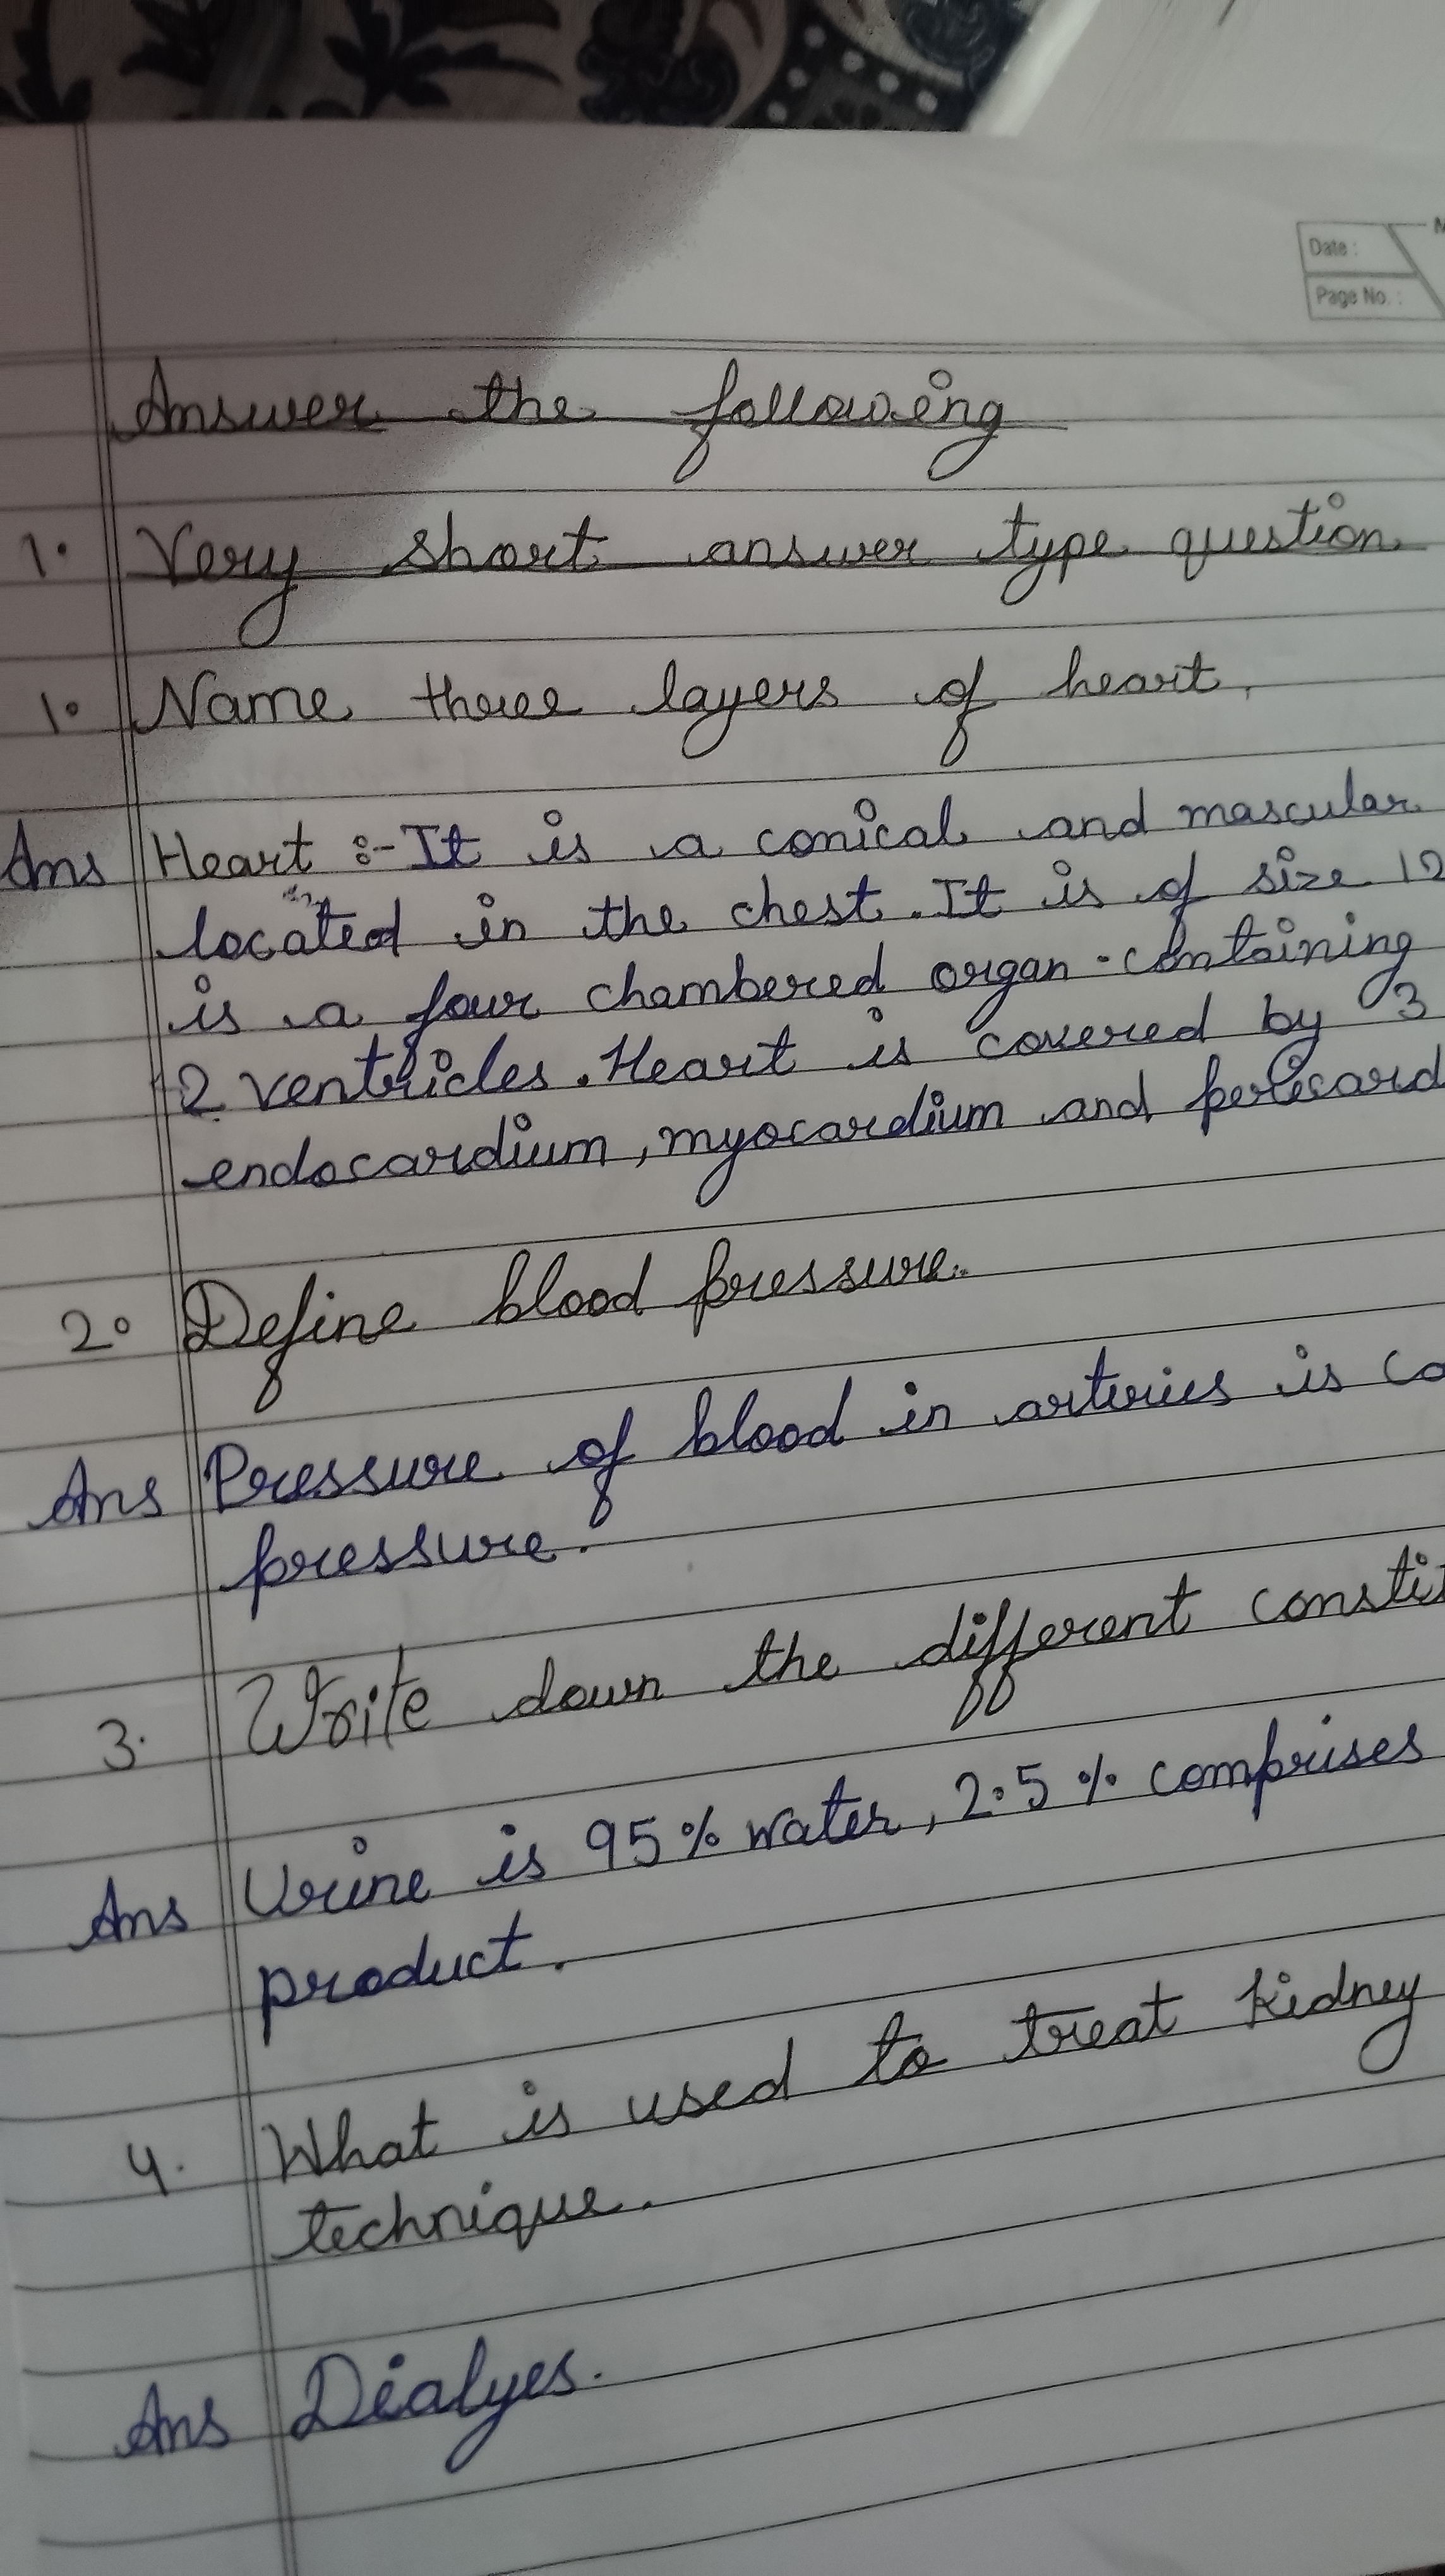 Date :
Page No. :
Answer the following
1. Very short answer type question
1. Name three layers of heart.
Ans Heart :- It is a conical and mascular
located in the chest. It is of size 12
is a four chambered organ - containing
2 ventricles. Heart is covered by 3
endocardium, myocardium and pericard
2. Define blood pressure.
Ans Pressure of blood in arteries is ca
pressure.
3. Write down the different consti
Ans Urine is 95% water, 2.5% comprises
product.
4. What is used to treat kidney
technique.
Ans Dialyes.